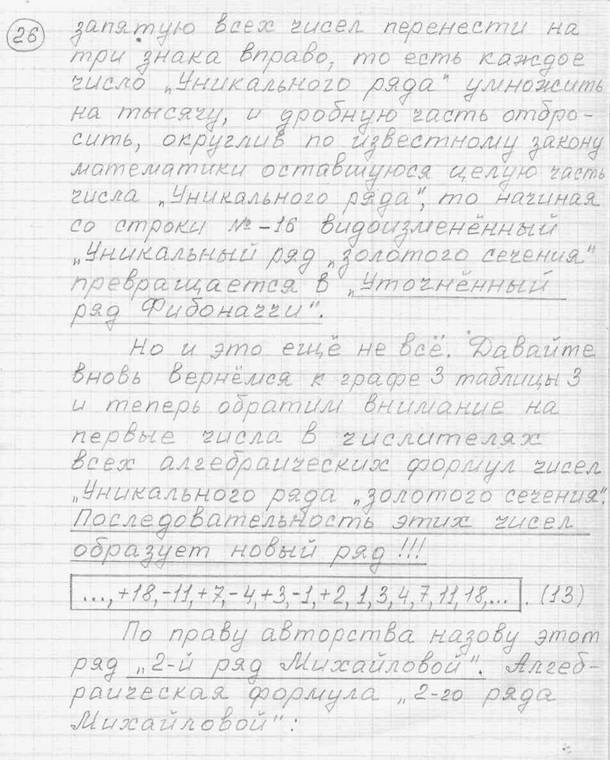 26
запятую всех чисел перенести на
три знака вправо, то есть каждое
число „Уникального ряда" умножить
на тысячу, и дробную часть отбро-
сить, округлив по известному закону
математики оставшуюся целую часть
числа „Уникального ряда", то начиная
со строки №-16 видоизменённый
„Уникальный ряд „золотого сечения"
превращается в „Уточнённый
ряд Фибоначчи".
Но и это ещё не всё. Давайте
вновь вернёмся к графе 3 таблицы 3
и теперь обратим внимание на
первые числа в числителях
всех алгебраических формул чисел
„Уникального ряда „золотого сечения".
Последовательность этих чисел
образует новый ряд !!!
..., +18, -11, +7, -4, +3, -1, +2, 1, 3, 4, 7, 11, 18, ... . (13)
По праву авторства назову этот
ряд „2-й ряд Михайловой". Алгеб-
раическая формула „2-го ряда
Михайловой":